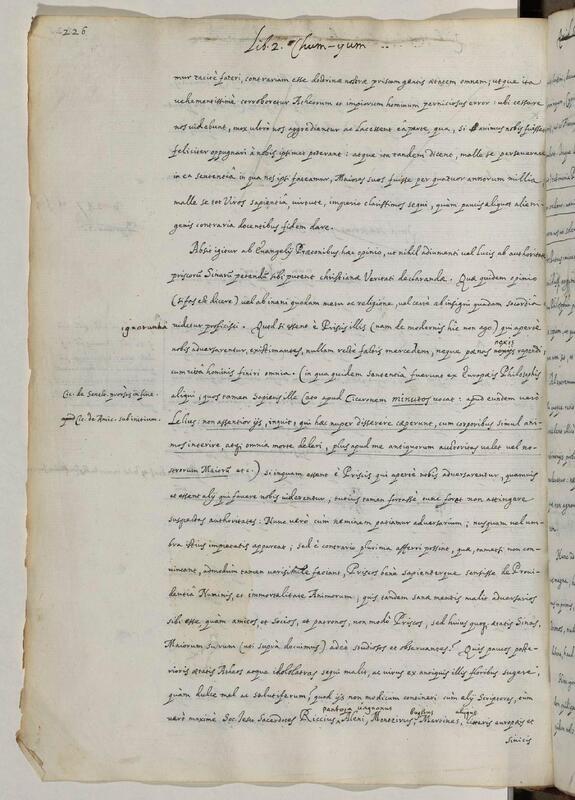 226
Lib. 2. Chum-yum
mur tacitè fateri, contrariam esse doctrinæ nostræ priscam gentis ætatem omnem; utque ita
vehementissimè corroboretur Atheorum et impiorum hominum perniciosus error: ubi cessare
nos videbunt, mox ultrò nos aggrediantur ac lacessent eâ parte, qua, si animus nobis fuisset
feliciter oppugnari à nobis ipsimet poterant: atque ita tandem dicent, malle se perseverare
in ea sententia in qua nos ipsi fateamur, Maiores suos fuisse per quatuor annorum millia
malle se tot Viros sapientiâ, virtute, imperio clarissimos sequi, quàm paucis aliquot alieni-
genis contraria docentibus fidem dare.
Absit igitur ab Evangelij Præconibus hæc opinio, ut nihil adiumenti vel lucis ab authoritate
priscorũ Sinarũ petendũ sibi putent christianæ Veritati declarandæ. Quæ quidem opinio
(si fas est dicere) vel ab inani quodam metu ac religione, vel certè ab insigni quadam socordia
ignorantia
videtur proficisci. Quod si essent è Priscis illis (nam de modernis hic non ago) qui apertè
nobis adversarentur, existimantes, nullam rectè factis mercedem, neque pœnas
noxijs
rependi,
cum vitâ hominis finiri omnia. (in qua quidem sententia fuerunt ex Europæis Philosophis
Cic. de Senect. prorsus in fine.
aliqui, quos tamen Sapiens ille Cato apud Ciceronem minutos vocat: apud eundem verò
Cic. de Amic. sub initium.
Lelius: non assentior ijs, inquit, qui hæc nuper disserere cœperunt, cum corporibus simul ani-
mos interire, atq; omnia morte deleri, plus apud me antiquorum auctoritas valet vel no-
strorum Maiorũ etc.) si inquam essent è Priscis qui apertè nobis adversarentur, quamvis
et essent alij qui favere nobis viderentur; tutius tamen fortassè foret non attingere
suspectas authoritates. Nunc verò cùm neminem patiamur adversarium; nusquam vel um-
bra huius impietatis appareat; sed è contrario plurima afferri possint, quæ, tametsi non con-
vincant, admodum tamen verisimile faciant, Priscos benè sapienterque sensisse de Provi-
dentia Numinis, et immortalitate Animorum; quis tandem sanæ mentis malit adversarios
sibi esse, quàm amicos, et Socios, et patronos, non modò Priscos, sed huius quoq; ætatis Sinas,
Maiorum suorum (uti suprà docuimus) adeò studiosos et observantes? Quis paucos poste-
rioris ætatis Atheos atque idololatras sequi malit, ac virus ex antiquis illis floribus sugere,
quàm dulce mel ac salutiferum? quod ijs non modicum contineri cum alij Scriptores, tùm
pantoja
longobardus
aliique
verò maximè Soc. Jesu Sacerdotes Riccius, Aleni, Monteirus, Martines, literis europæis et
sinicis